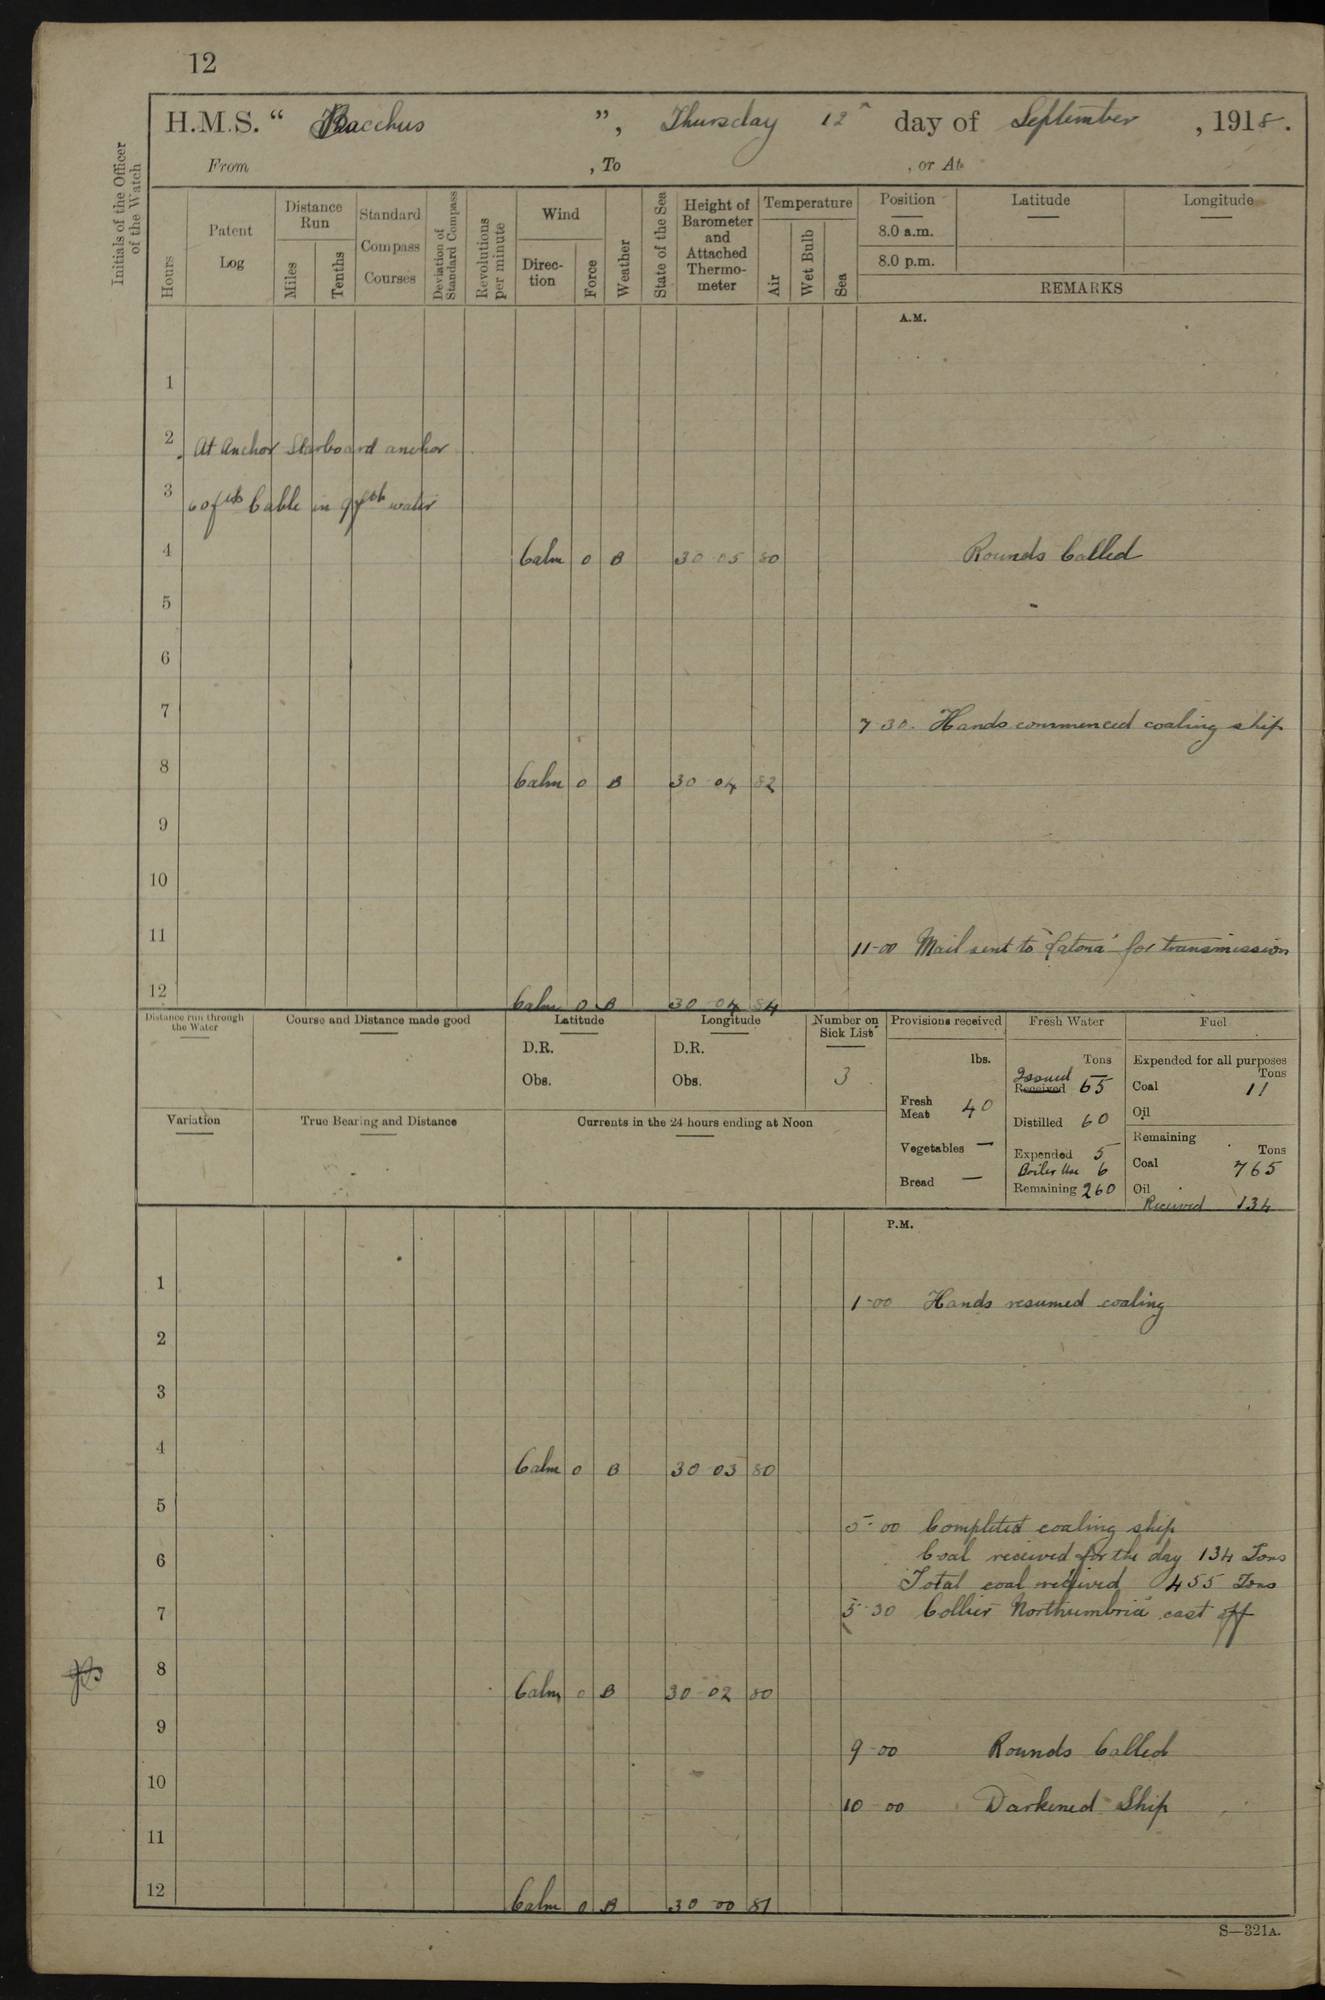 12
H.M.S. “ Bacchus ”, Thursday 12th day of September, 1918.
From , To , or At
Initials of the Officer of the Watch
Hours
Patent Log
Distance Run
Miles
Tenths
Standard Compass Courses
Deviation of Standard Compass
Revolutions per minute
Wind
Direc-tion
Force
Weather
State of the Sea
Height of Barometer and Attached Thermo-meter
Temperature
Air
Wet Bulb
Sea
Position Latitude Longitude
8.0 a.m.
8.0 p.m.
REMARKS
A.M.
1
2 At Anchor Starboard anchor
3 60 fths Cable in 9 fth water
4 Calm 0 B 30 05 80 Rounds Called
5
6
7 7 30. Hands commenced coaling ship
8 Calm 0 B 30 04 82
9
10
11 11-00 Mail sent to "Latona" for transmission
12 Calm 0 B 30 04 84
Distance run through the Water
Course and Distance made good
Latitude
D.R.
Obs.
Longitude
D.R.
Obs.
Number on Sick List
3
Variation
True Bearing and Distance
Currents in the 24 hours ending at Noon
Provisions received
lbs.
Fresh Meat 40
Vegetables —
Bread —
Fresh Water
Tons
Issued
Received 65
Distilled 60
Expended 5
Boiler Use 6
Remaining 260
Fuel
Expended for all purposes
Tons
Coal 11
Oil
Remaining
Tons
Coal 765
Oil
Received 134
P.M.
1 1-00 Hands resumed coaling
2
3
4 Calm 0 B 30 03 80
5 5-00 Completed coaling ship
6 Coal received for the day 134 Tons
Total coal received 455 Tons
7 5-30 Collier Northumbria cast off
8 Calm 0 B 30 02 80
9 9-00 Rounds Called
10 10-00 Darkened Ship
11
12 Calm 0 B 30 00 81
S—321A.